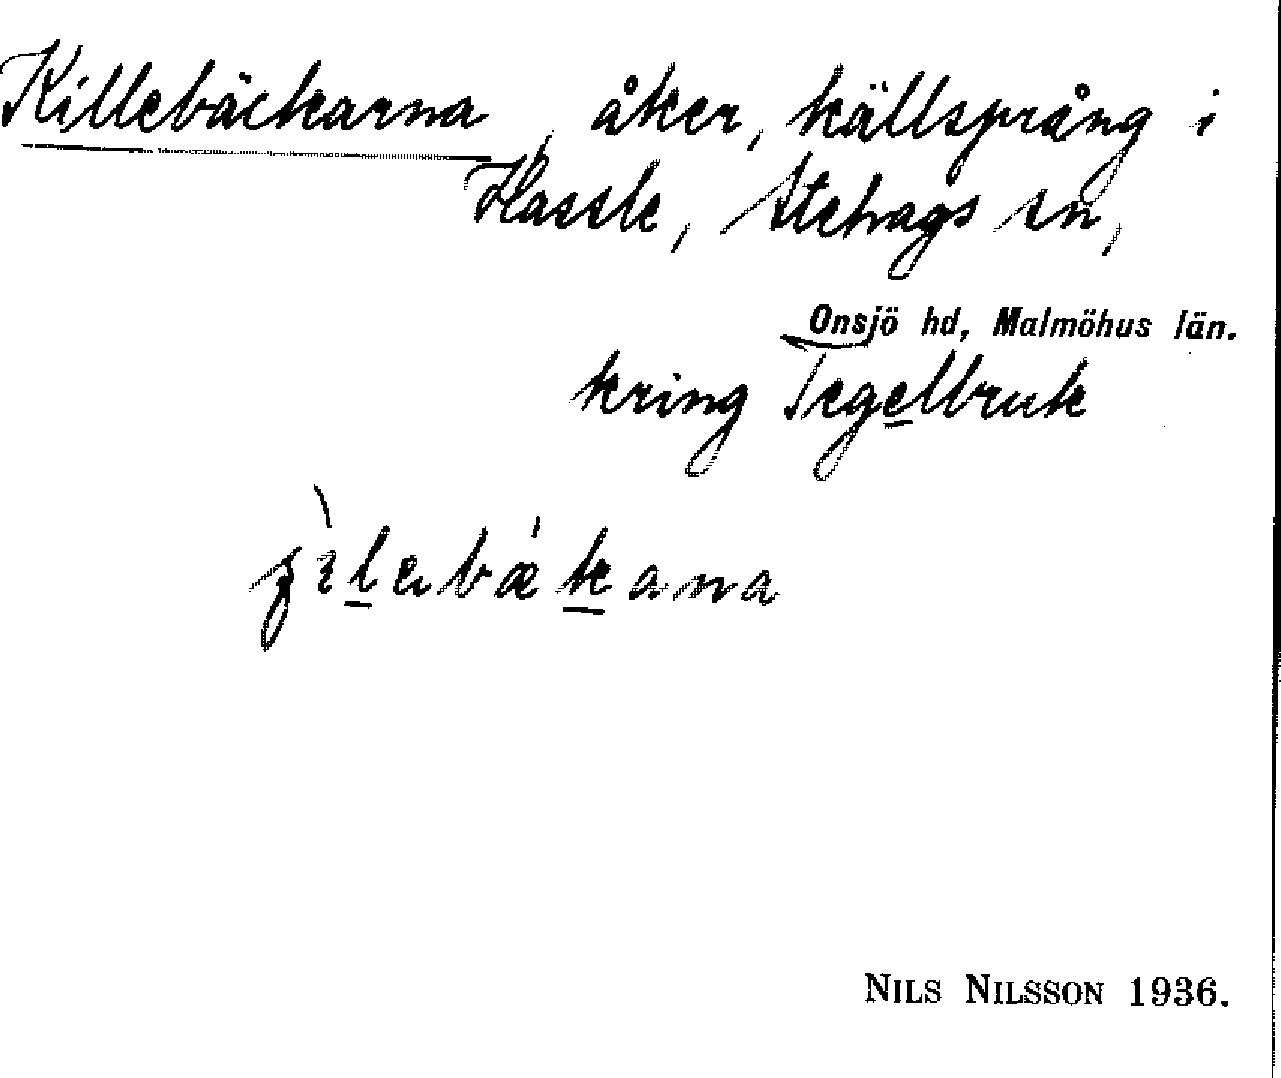 Killebäckarna, åker, källsprång i
Hassle, Stehags sn,
Onsjö hd, Malmöhus län.
kring Tegelbruk
NILS NILSSON 1936.